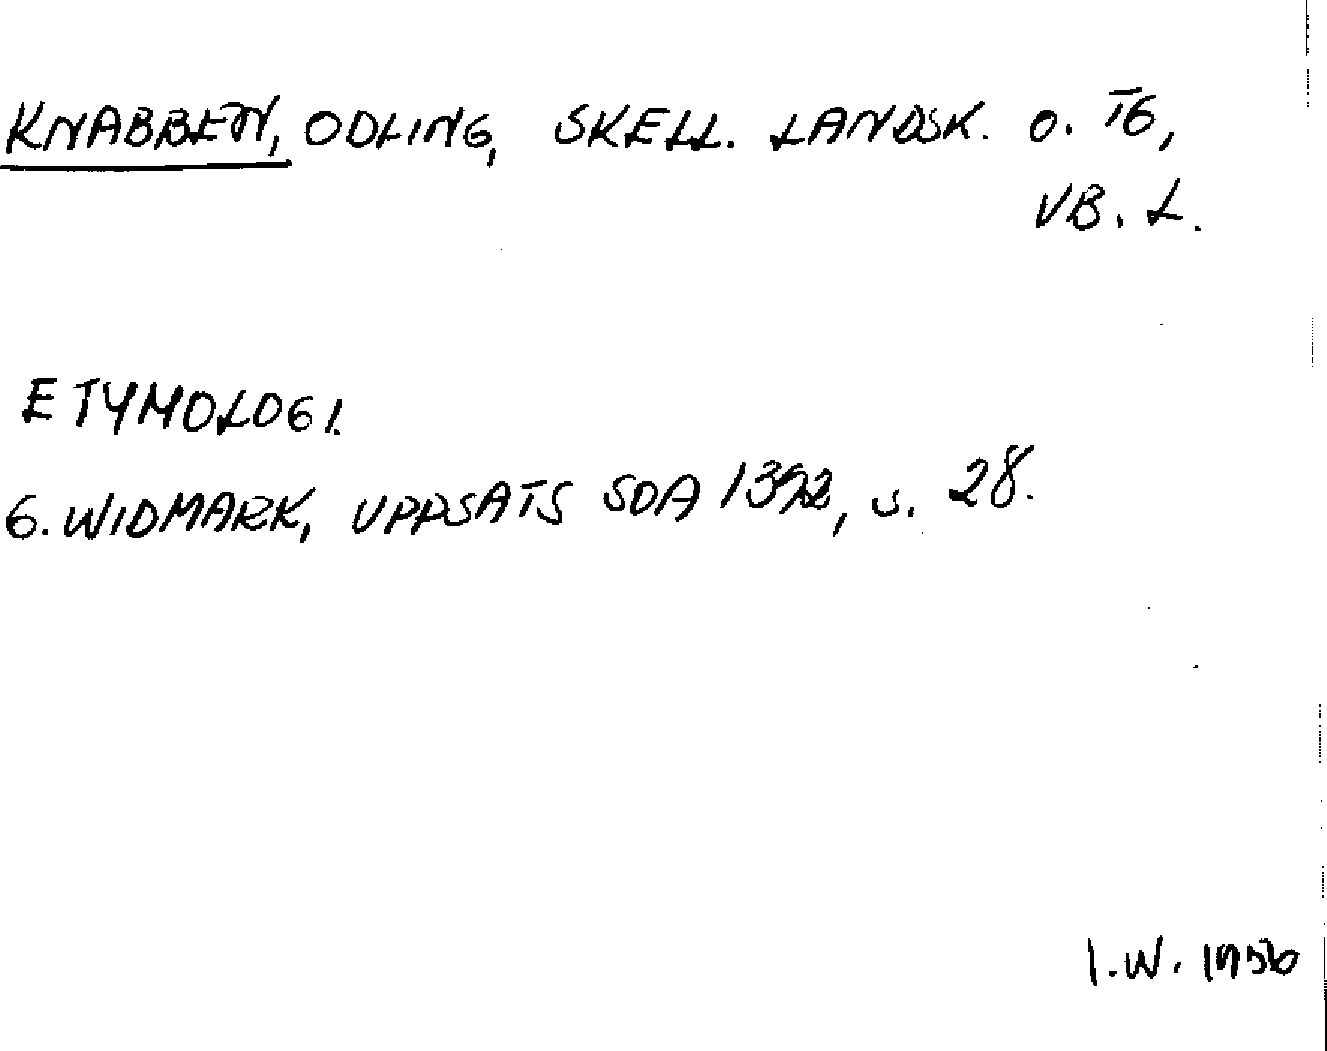 KNABBEN, ODLING, SKELL. LANDSK. O. TG,
VB. L.
ETYMOLOGI.
G. WIDMARK, UPPSATS SOA 1392, s. 28.
I. W. 1956